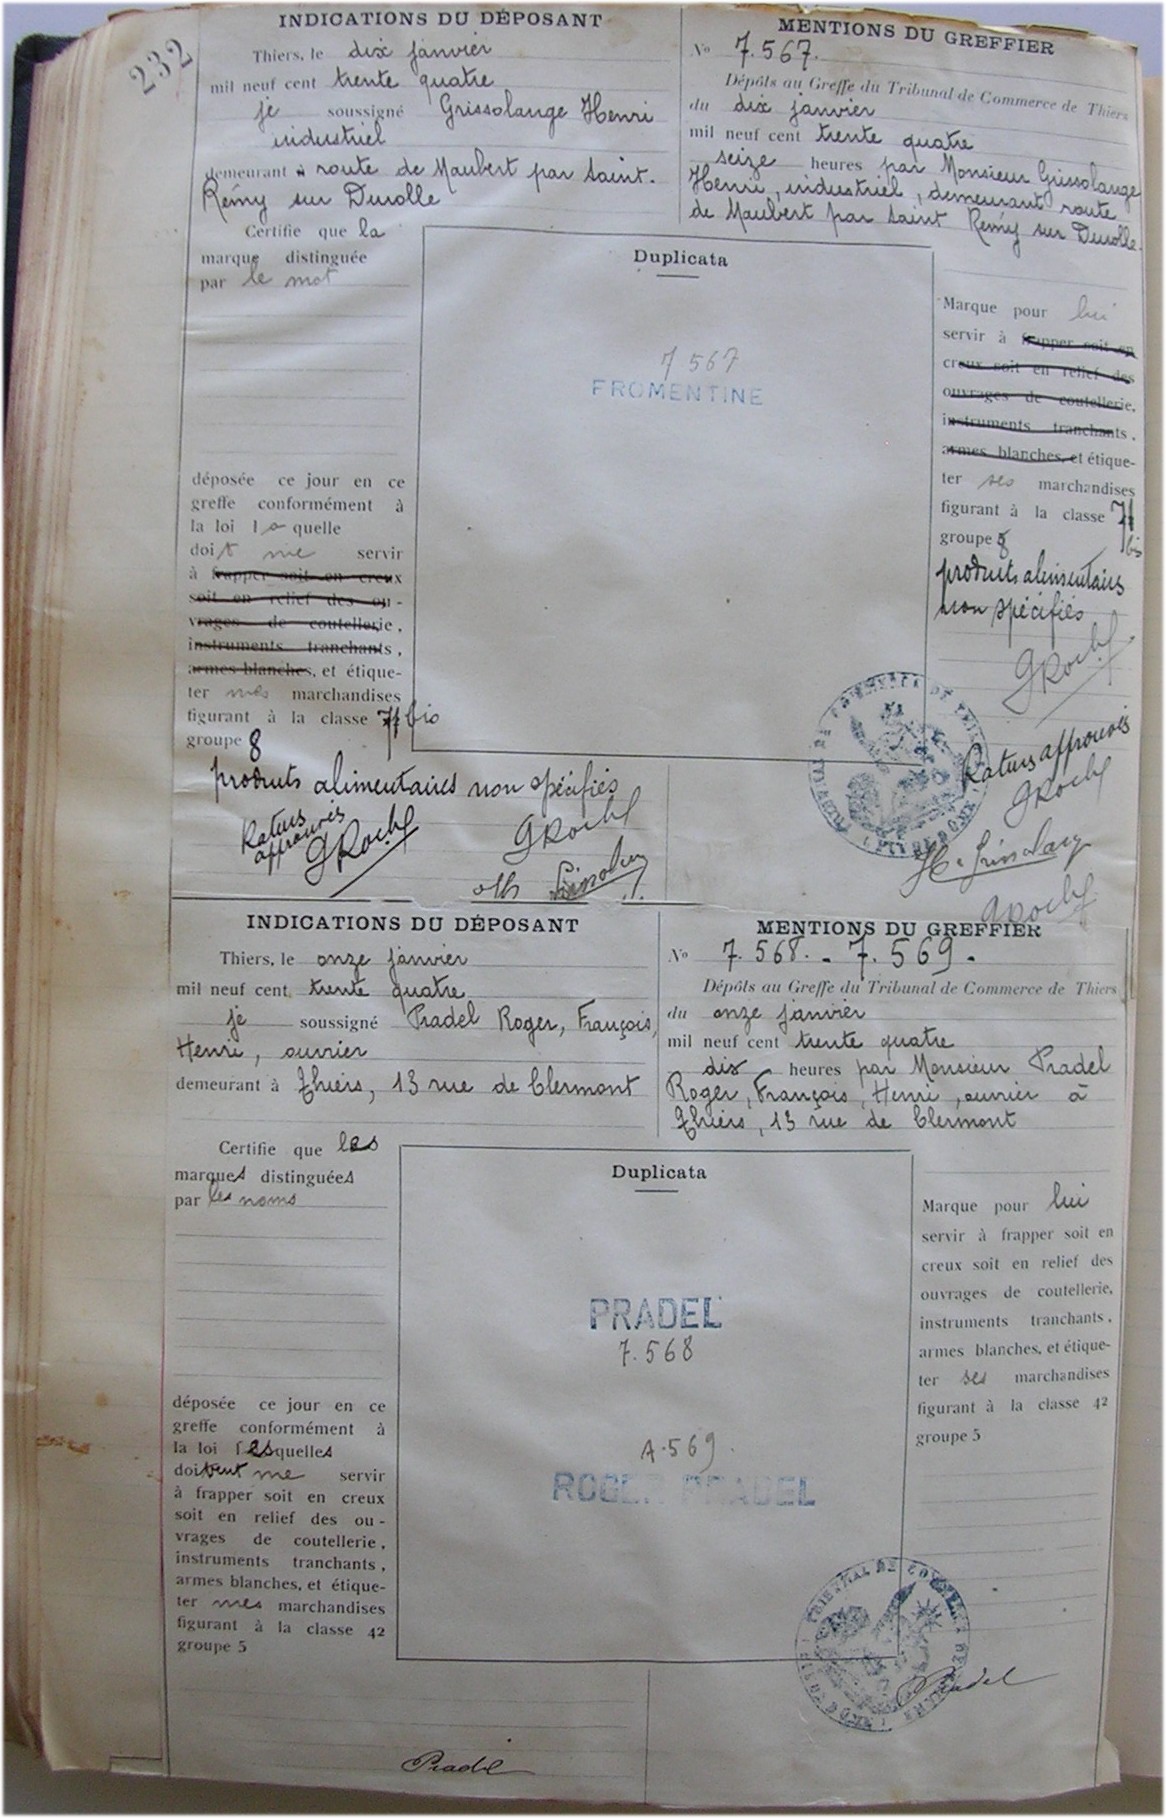 232
INDICATIONS DU DÉPOSANT
Thiers, le dix janvier
mil neuf cent trente quatre
je soussigné Grissolange Henri
industriel
demeurant à route de Maubert par Saint-
Rémy sur Durolle
Certifie que la
marque distinguée
par le mot
déposée ce jour en ce
greffe conformément à
la loi la quelle
doit me servir
à frapper soit en creux
soit en relief des ou-
vrages de coutellerie,
instruments tranchants,
armes blanches, et étique-
ter mes marchandises
figurant à la classe 71 bis
groupe 8
produits alimentaires non spécifiés
Ratures
approuvées
GRoche
GRoche
MENTIONS DU GREFFIER
No 7.567.
Dépôts au Greffe du Tribunal de Commerce de Thiers
du dix janvier
mil neuf cent trente quatre
seize heures par Monsieur Grissolange
Henri, industriel, demeurant route
de Maubert par Saint Rémy sur Durolle.
Duplicata
7 567
FROMENTINE
Marque pour lui
servir à frapper soit en
creux soit en relief des
ouvrages de coutellerie,
instruments tranchants,
armes blanches, et étique-
ter ses marchandises
figurant à la classe 71
bis
groupe 8
produits alimentaires
non spécifiés
GRoche
Ratures approuvées
GRoche
INDICATIONS DU DÉPOSANT
Thiers, le onze janvier
mil neuf cent trente quatre
je soussigné Pradel Roger, François,
Henri, ouvrier
demeurant à Thiers, 13 rue de Clermont
Certifie que les
marques distinguées
par les noms
déposée ce jour en ce
greffe conformément à
la loi lesquelles
doivent me servir
à frapper soit en creux
soit en relief des ou-
vrages de coutellerie,
instruments tranchants,
armes blanches, et étique-
ter mes marchandises
figurant à la classe 42
groupe 5
Pradel
MENTIONS DU GREFFIER
No 7.568. - 7.569.
Dépôts au Greffe du Tribunal de Commerce de Thiers
du onze janvier
mil neuf cent trente quatre
dix heures par Monsieur Pradel
Roger, François, Henri, ouvrier à
Thiers, 13 rue de Clermont
Duplicata
PRADEL
7.568
A.569.
ROGER PRADEL
Marque pour lui
servir à frapper soit en
creux soit en relief des
ouvrages de coutellerie,
instruments tranchants,
armes blanches, et étique-
ter ses marchandises
figurant à la classe 42
groupe 5
TRIBUNAL DE COMMERCE DE THIERS
Pradel